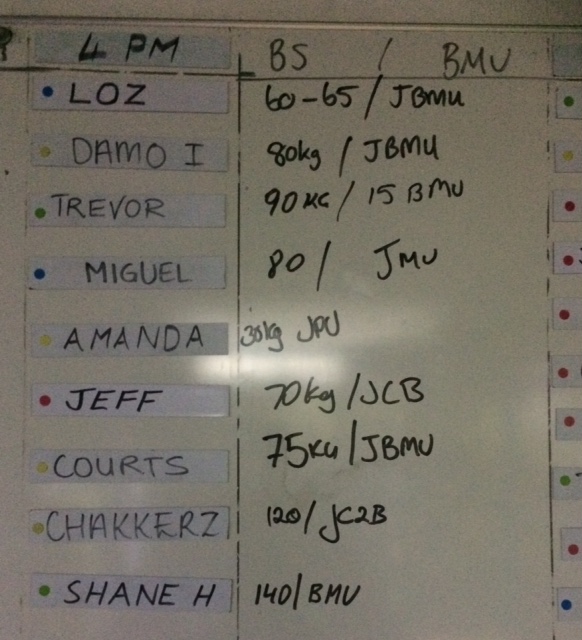 4 PM BS / BMU
LOZ 60-65 / JBMU
DAMO I 80kg / JBMU
TREVOR 90KG / 15 BMU
MIGUEL 80 / JMU
AMANDA JPU
JEFF 70kg / JCB
COURTS 75KG / JBMU
CHAKKERZ 120 / JC2B
SHANE H 140 / BMU